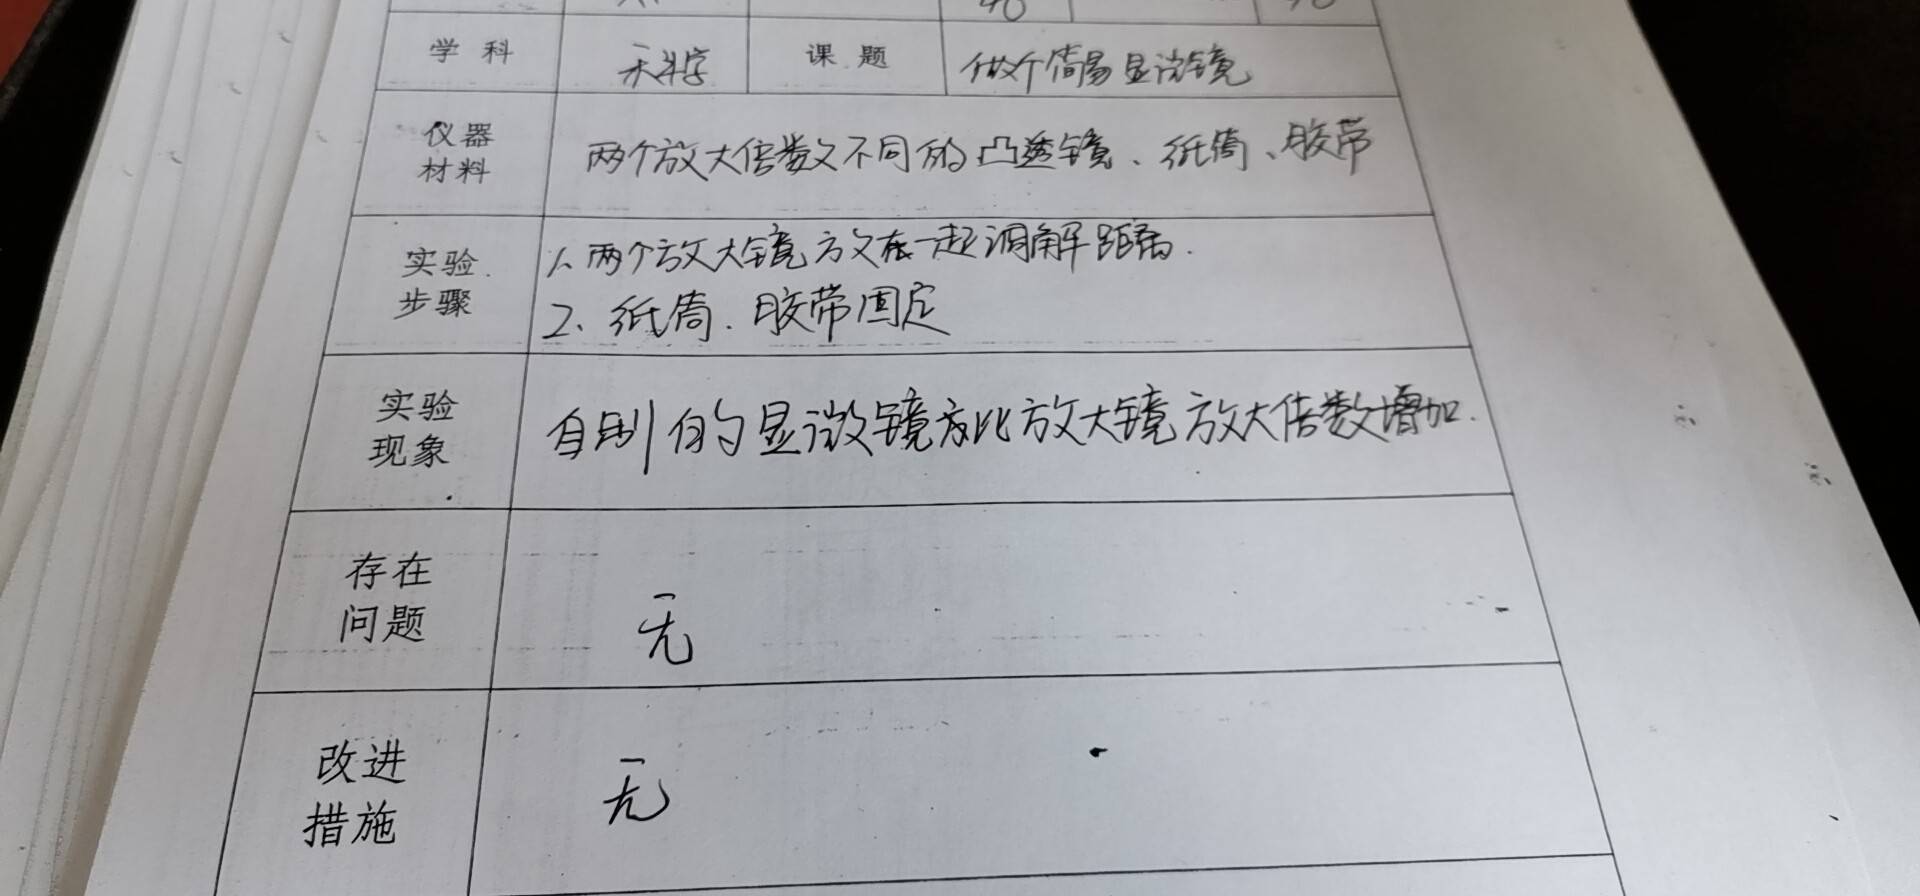 学科 科学 课题 做个简易显微镜
仪器
材料
两个放大倍数不同的凸透镜、纸筒、胶带
实验
步骤
1、两个放大镜放在一起调解距离.
2、纸筒、胶带固定
实验
现象
自制的显微镜比放大镜放大倍数增加.
存在
问题
无
改进
措施
无